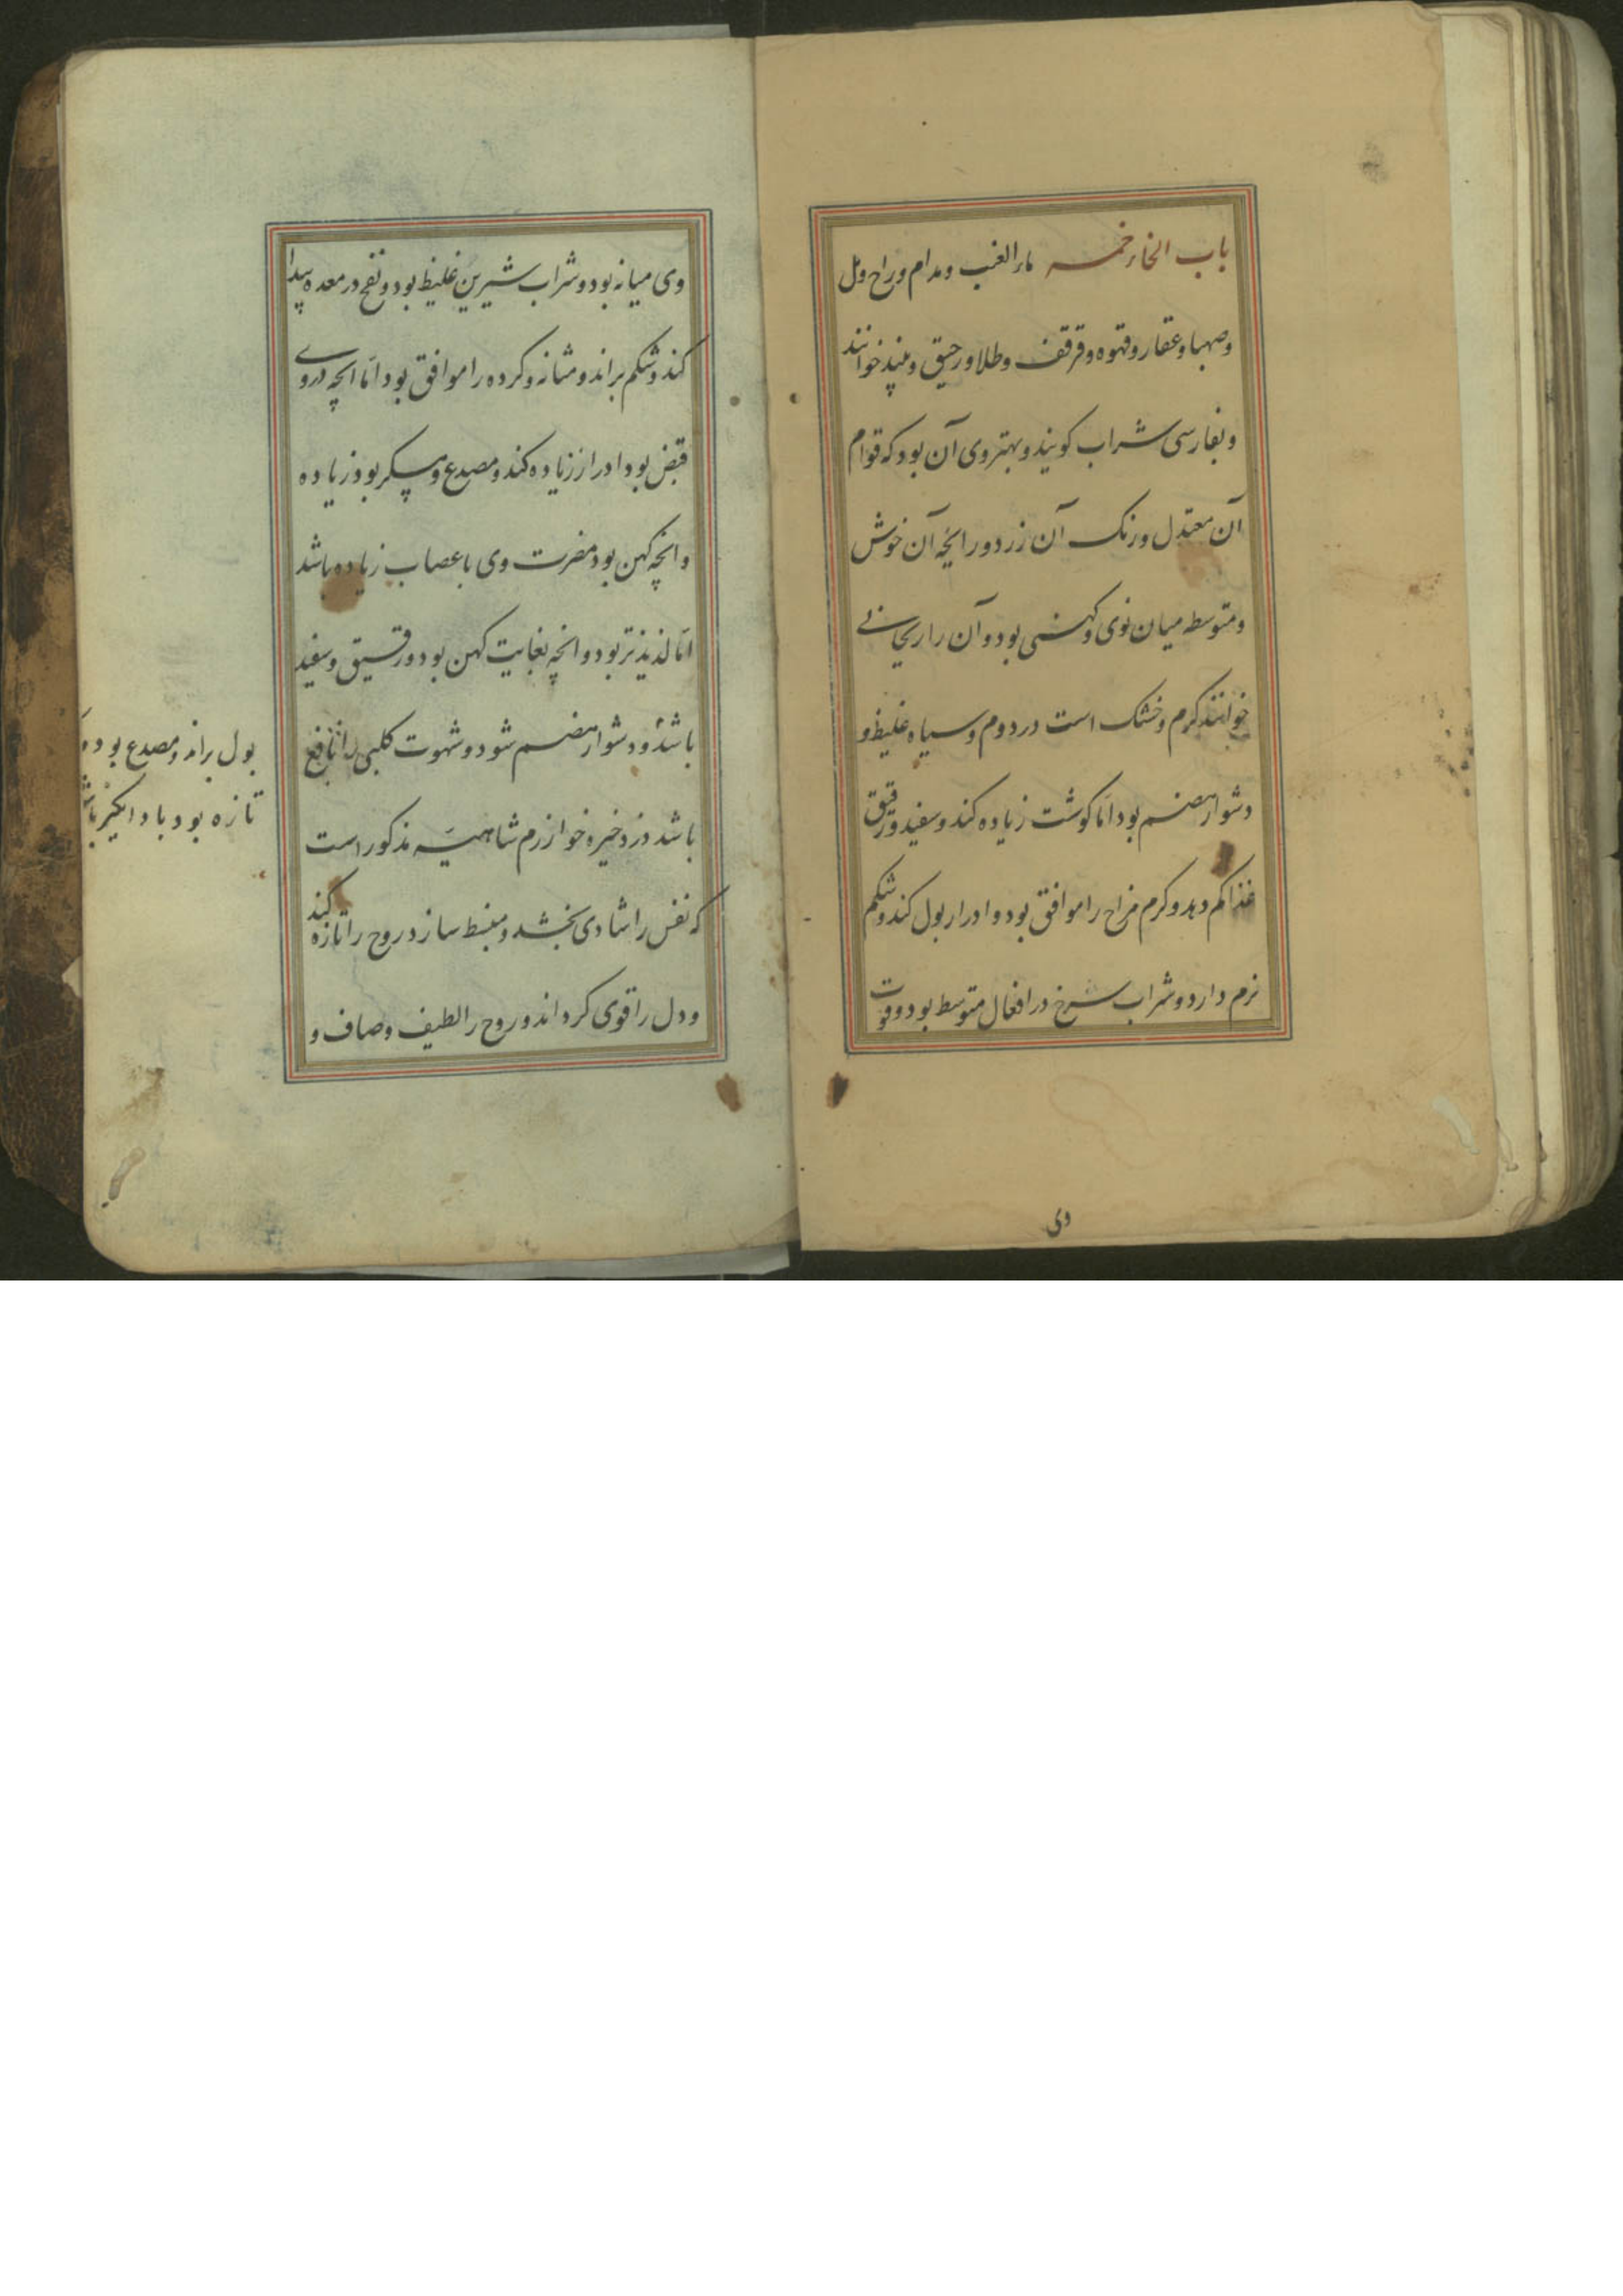 باب الخاء خمر ماء العنب و مدام و راح و مل
و صهبا و عقار و قهوه و قرقف و طلا و رحیق و نبیذ خوانند
و بفارسی شراب کویند و بهتر وی آن بود که قوام
آن معتدل و رنک آن زرد و رایحه آن خوش
و متوسطه میان نوی و کهنی بود و آن را ریحانی
خوانند کرم و خشک است در دوم و سیاه غلیظ و
دشوار هضم بود اما کوشت زیاده کند و سفید و رقیق
غذا کم دهد و کرم مزاج را موافق بود و ادرار بول کند و شکم
نرم دارد و شراب سرخ در افعال متوسط بود و قوت
وی
وی میانه بود و شراب شیرین غلیظ بود و نفخ در معده پیدا
کند و شکم براند و مثانه و کرده را موافق بود اما انچه در وی
قبض بود ادرار زیاده کند و مصدع و مسکر بود زیاده
و انچه کهن بود مضرت وی باعصاب زیاده باشد
اما لذیذتر بود و انچه بغایت کهن بود و رقیق و سفید
باشد و دشوار هضم شود و شهوت کلبی را نافع
باشد در ذخیره خوارزم شاهیه مذکور است
که نفس را شادی بخشد و منبسط سازد و روح را تازه کند
و دل را قوی کرداند و روح را لطیف و صاف و
بول براند و مصدع بود
تازه بود باد انکیز باشد